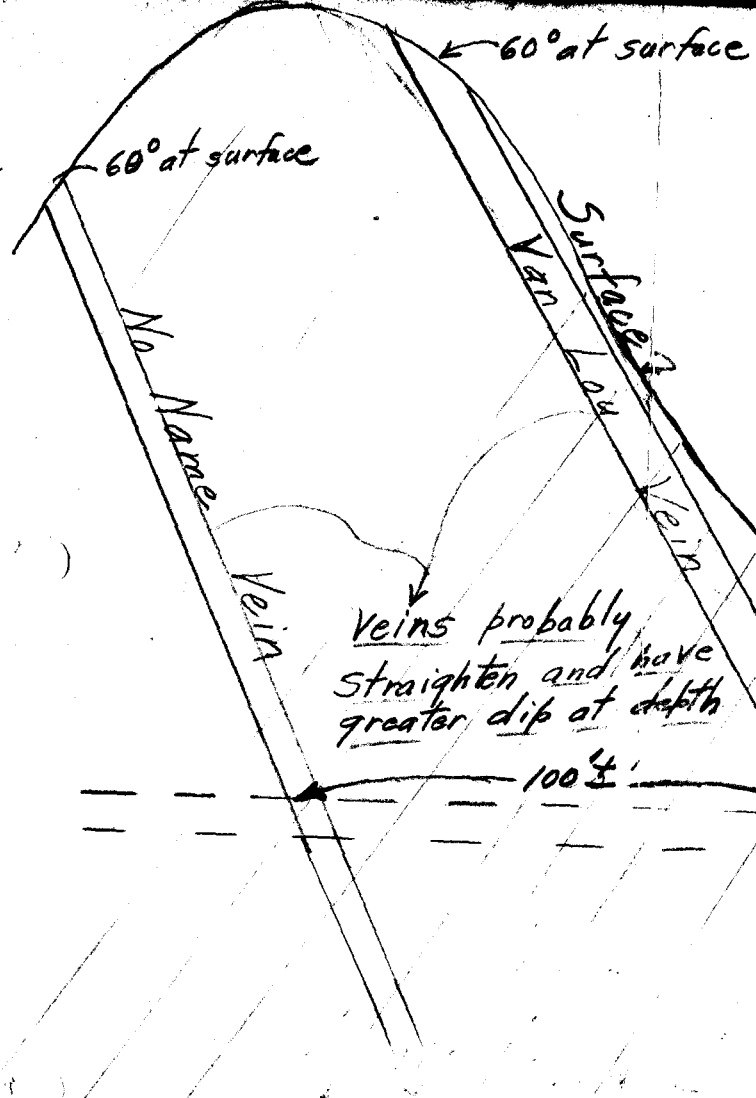 60° at surface
60° at surface
Surface
No Name Vein
Van Lou Vein
Veins probably
straighten and have
greater dip at depth
100'±